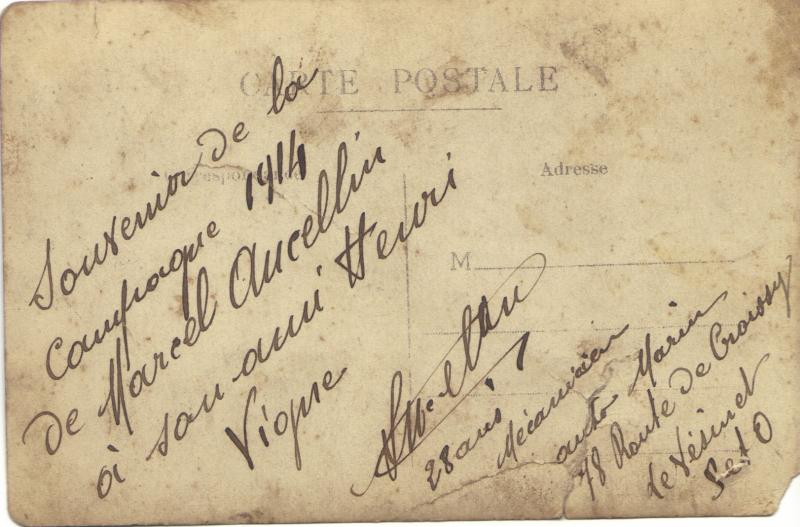 CARTE POSTALE
Correspondance
Adresse
M
Souvenir de la
campagne 1914
de Marcel Ancellin
à son ami Henri
Vigne
28 ans
Mécanicien
auto Marin
78 Route de Croissy
Le Vésinet
S et O